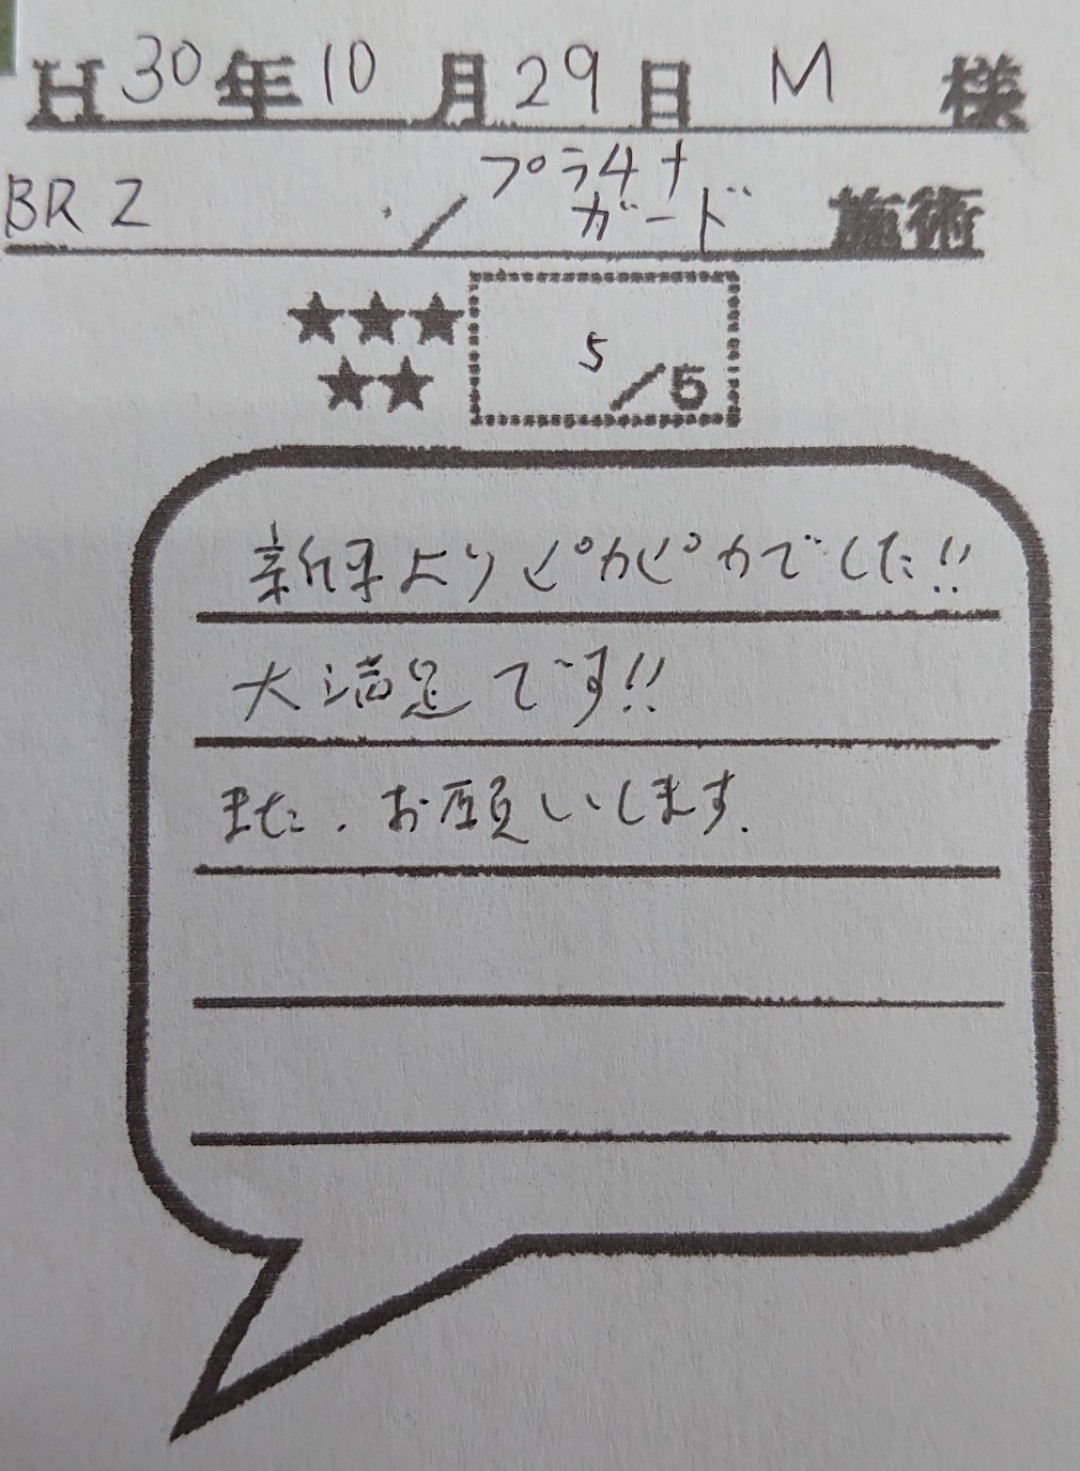 H30年10月29日 M 様
BRZ / プラチナガード 施術
★★★
★★
5/5
新車よりピカピカでした!!
大満足です!!
また、お願いします.